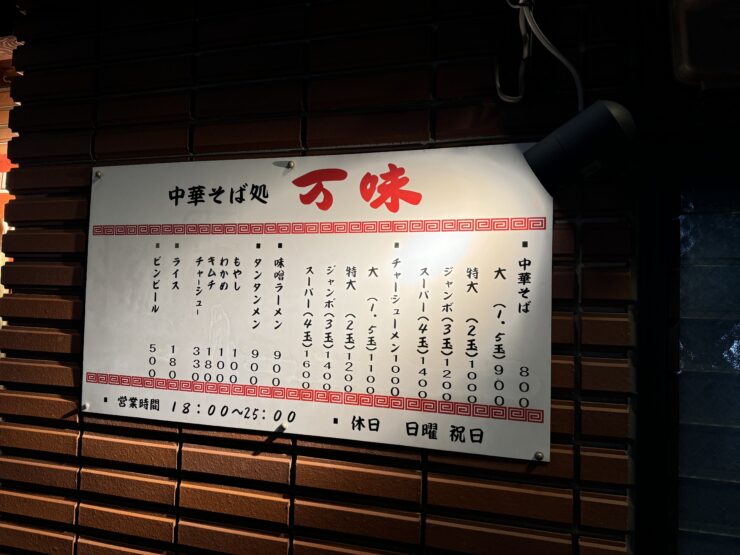 中華そば処 万味
■中華そば 800
大（1.5玉）900
特大（2玉）1000
ジャンボ（3玉）1200
スーパー（4玉）1400
■チャーシューメン 1000
大（1.5玉）1100
特大（2玉）1200
ジャンボ（3玉）1400
スーパー（4玉）1600
■味噌ラーメン 900
■タンタンメン 900
もやし 100
わかめ 100
キムチ 180
チャーシュー 330
■ライス 180
■ビンビール 500
■営業時間 18:00～25:00
■休日 日曜 祝日